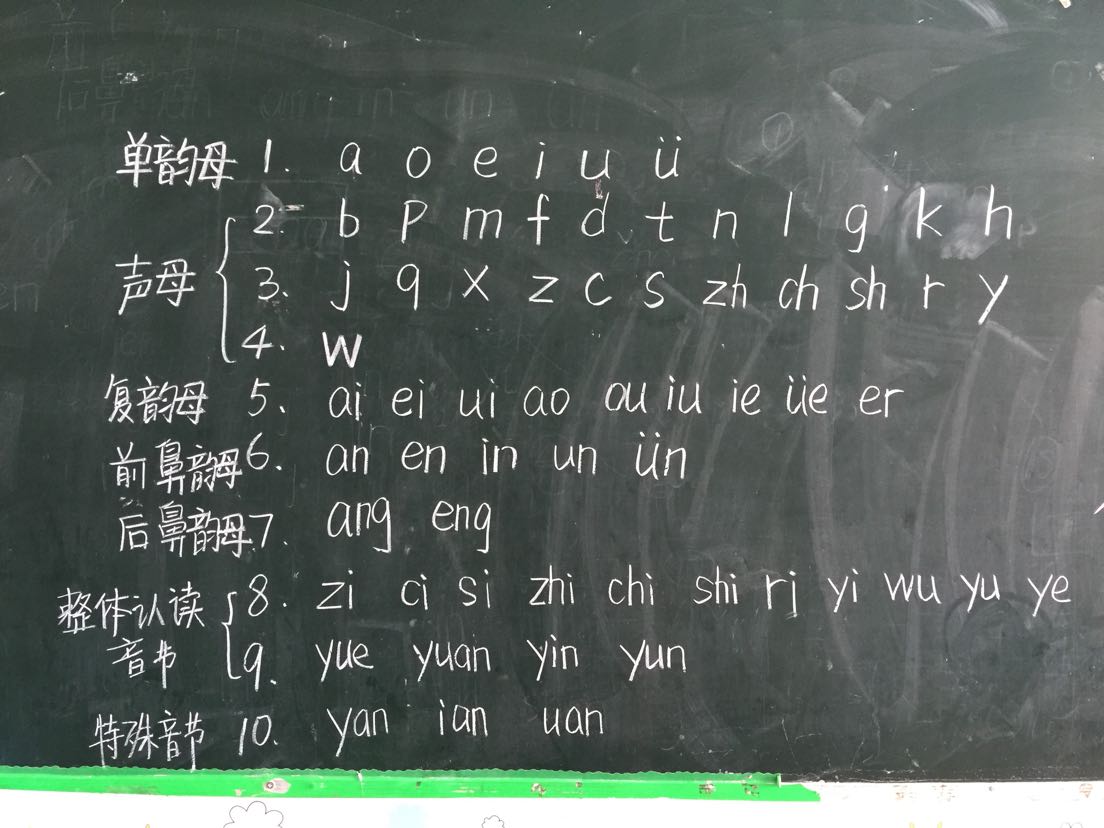 单韵母 1. a o e i u ü
2. b p m f d t n l g k h
声母 3. j q x z c s zh ch sh r y
4. w
复韵母 5. ai ei ui ao ou iu ie üe er
前鼻韵母 6. an en in un ün
后鼻韵母 7. ang eng
整体认读 8. zi ci si zhi chi shi ri yi wu yu ye
音节 9. yue yuan yin yun
特殊音节 10. yan ian uan